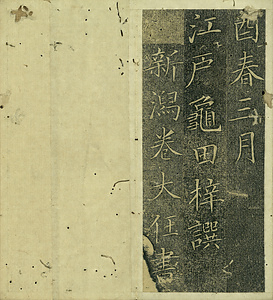 酉春三月
江戸龜田梓譔
新潟卷大任書